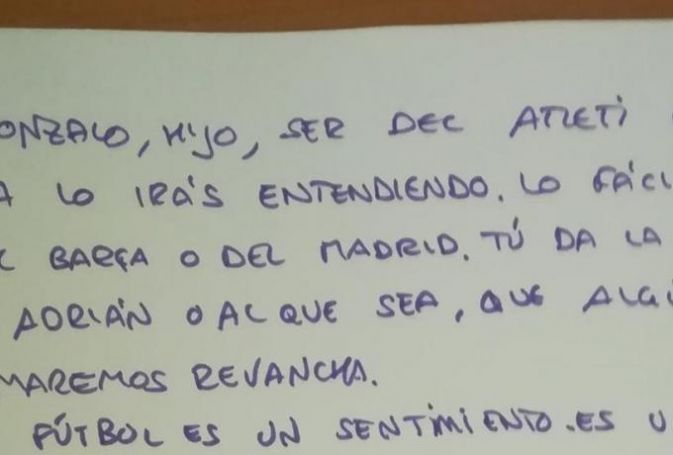 ONZALO, HIJO, SER DEL ATLETI
A LO IRÁS ENTENDIENDO. LO FÁCIL
L BARÇA O DEL MADRID. TÚ DA LA
ADRIÁN O AL QUE SEA, QUE ALGÚ
MAREMOS REVANCHA.
FÚTBOL ES UN SENTIMIENTO. ES U